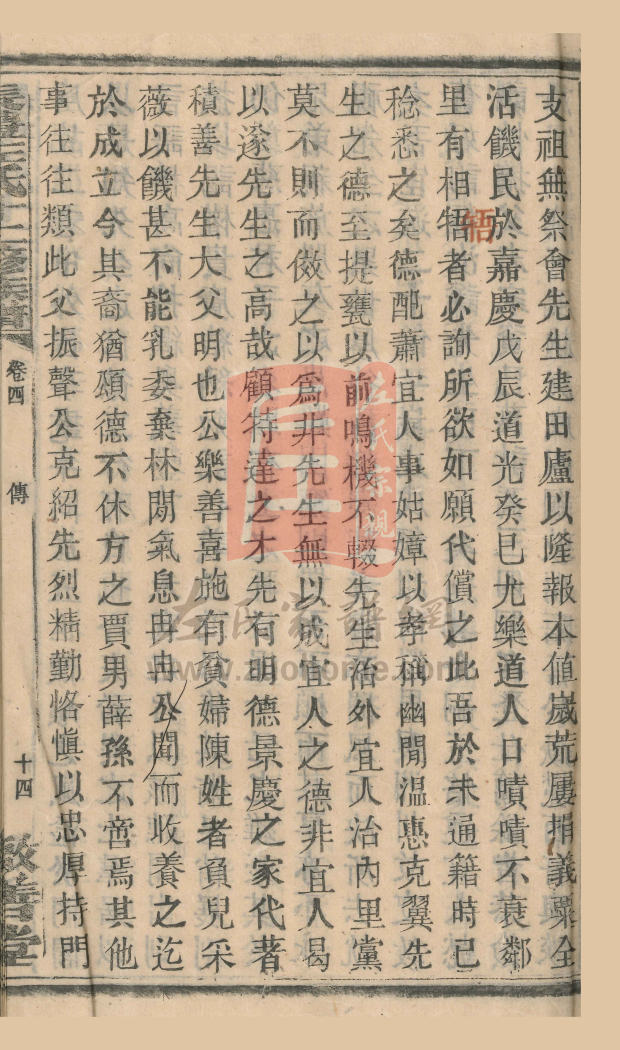 支祖無祭會先生建田廬以隆報本値歲荒屢捐義粟全
活饑民於嘉慶戊辰道光癸巳尤樂道人口嘖嘖不衰鄰
里有相牾者必詢所欲如願代償之此吾於未通籍時已
稔悉之矣德配蕭宜人事姑嫜以孝稱幽閒溫惠克翼先
生之德至提甕以前鳴機不輟先生治外宜人治內里黨
莫不則而傚之以爲非先生無以成宜人之德非宜人曷
以遂先生之高哉顧特達之才先有明德景慶之家代著
積善先生大父明也公樂善喜施有貧婦陳姓者負兒采
薇以饑甚不能乳委棄林間氣息冉冉公聞而收養之迄
於成立今其裔猶頌德不休方之賈男薛孫不啻焉其他
事往往類此父振聲公克紹先烈精勤恪愼以忠厚持門
氏十二修族譜
卷四
傳
十四
敦善堂
牾
左氏宗親
左氏家譜網
www.zuohome.com